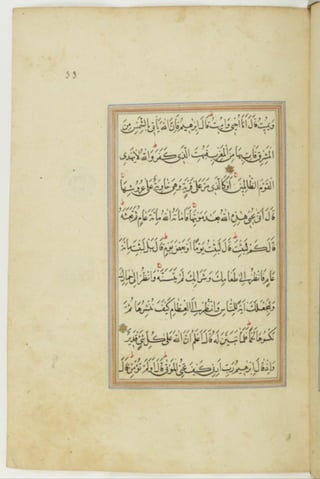 ٣٣
ويميت قال انا احيي واميت قال ابرهيم فان الله ياتي بالشمس من
المشرق فات بها من المغرب فبهت الذي كفر والله لا يهدي
القوم الظالمين او كالذي مر على قرية وهي خاوية على عروشها
قال انى يحيي هذه الله بعد موتها فاماته الله مائة عام ثم بعثه
قال كم لبثت قال لبثت يوما او بعض يوم قال بل لبثت مائة
عام فانظر الى طعامك وشرابك لم يتسنه وانظر الى حمارك
ولنجعلك اية للناس وانظر الى العظام كيف ننشزها ثم
نكسوها لحما فلما تبين له قال اعلم ان الله على كل شيء قدير
واذ قال ابرهيم رب ارني كيف تحيي الموتى قال اولم تؤمن قال